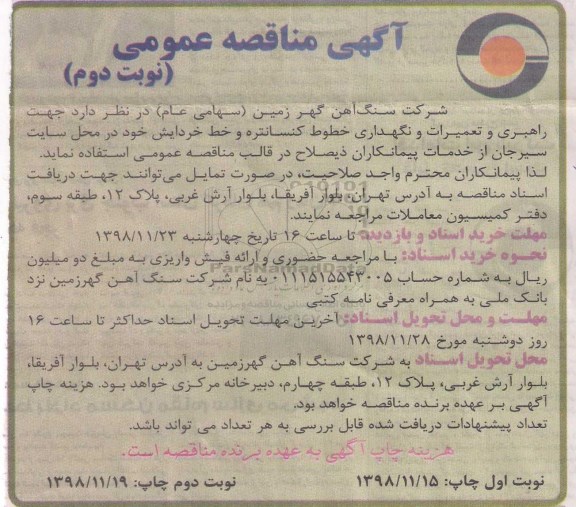 آگهی مناقصه عمومی
(نوبت دوم)
شرکت سنگ‌آهن گهر زمین (سهامی عام) در نظر دارد جهت
راهبری و تعمیرات و نگهداری خطوط کنسانتره و خط خردایش خود در محل سایت
سیرجان از خدمات پیمانکاران ذیصلاح در قالب مناقصه عمومی استفاده نماید.
لذا پیمانکاران محترم واجد صلاحیت، در صورت تمایل می‌توانند جهت دریافت
اسناد مناقصه به آدرس تهران، بلوار آفریقا، بلوار آرش غربی، پلاک ۱۲، طبقه سوم،
دفتر کمیسیون معاملات مراجعه نمایند.
مهلت خرید اسناد و بازدید: تا ساعت ۱۶ تاریخ چهارشنبه ۱۳۹۸/۱۱/۲۳
نحوه خرید اسناد: با مراجعه حضوری و ارائه فیش واریزی به مبلغ دو میلیون
ریال به شماره حساب ۰۱۱۱۵۱۵۵۴۳۰۰۵ به نام شرکت سنگ آهن گهرزمین نزد
بانک ملی به همراه معرفی نامه کتبی
مهلت و محل تحویل اسناد: آخرین مهلت تحویل اسناد حداکثر تا ساعت ۱۶
روز دوشنبه مورخ ۱۳۹۸/۱۱/۲۸
محل تحویل اسناد به شرکت سنگ آهن گهرزمین به آدرس تهران، بلوار آفریقا،
بلوار آرش غربی، پلاک ۱۲، طبقه چهارم، دبیرخانه مرکزی خواهد بود. هزینه چاپ
آگهی بر عهده برنده مناقصه خواهد بود.
تعداد پیشنهادات دریافت شده قابل بررسی به هر تعداد می تواند باشد.
هزینه چاپ آگهی به عهده برنده مناقصه است.
نوبت اول چاپ: ۱۳۹۸/۱۱/۱۵ نوبت دوم چاپ: ۱۳۹۸/۱۱/۱۹